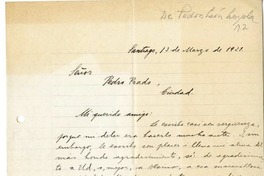 De Pedro León Loyola
12
Santiago, 13 de Marzo de 1921.
Señor
Pedro Prado,
Ciudad
Mi querido amigo:
Le escribo casi con vergüenza,
porque mi deber era hacerlo mucho antes. Sin
embargo, le escribo con placer i lleno mi alma del
mas hondo agradecimiento, sí, de agradecimiento
a Ud, a mejor, a